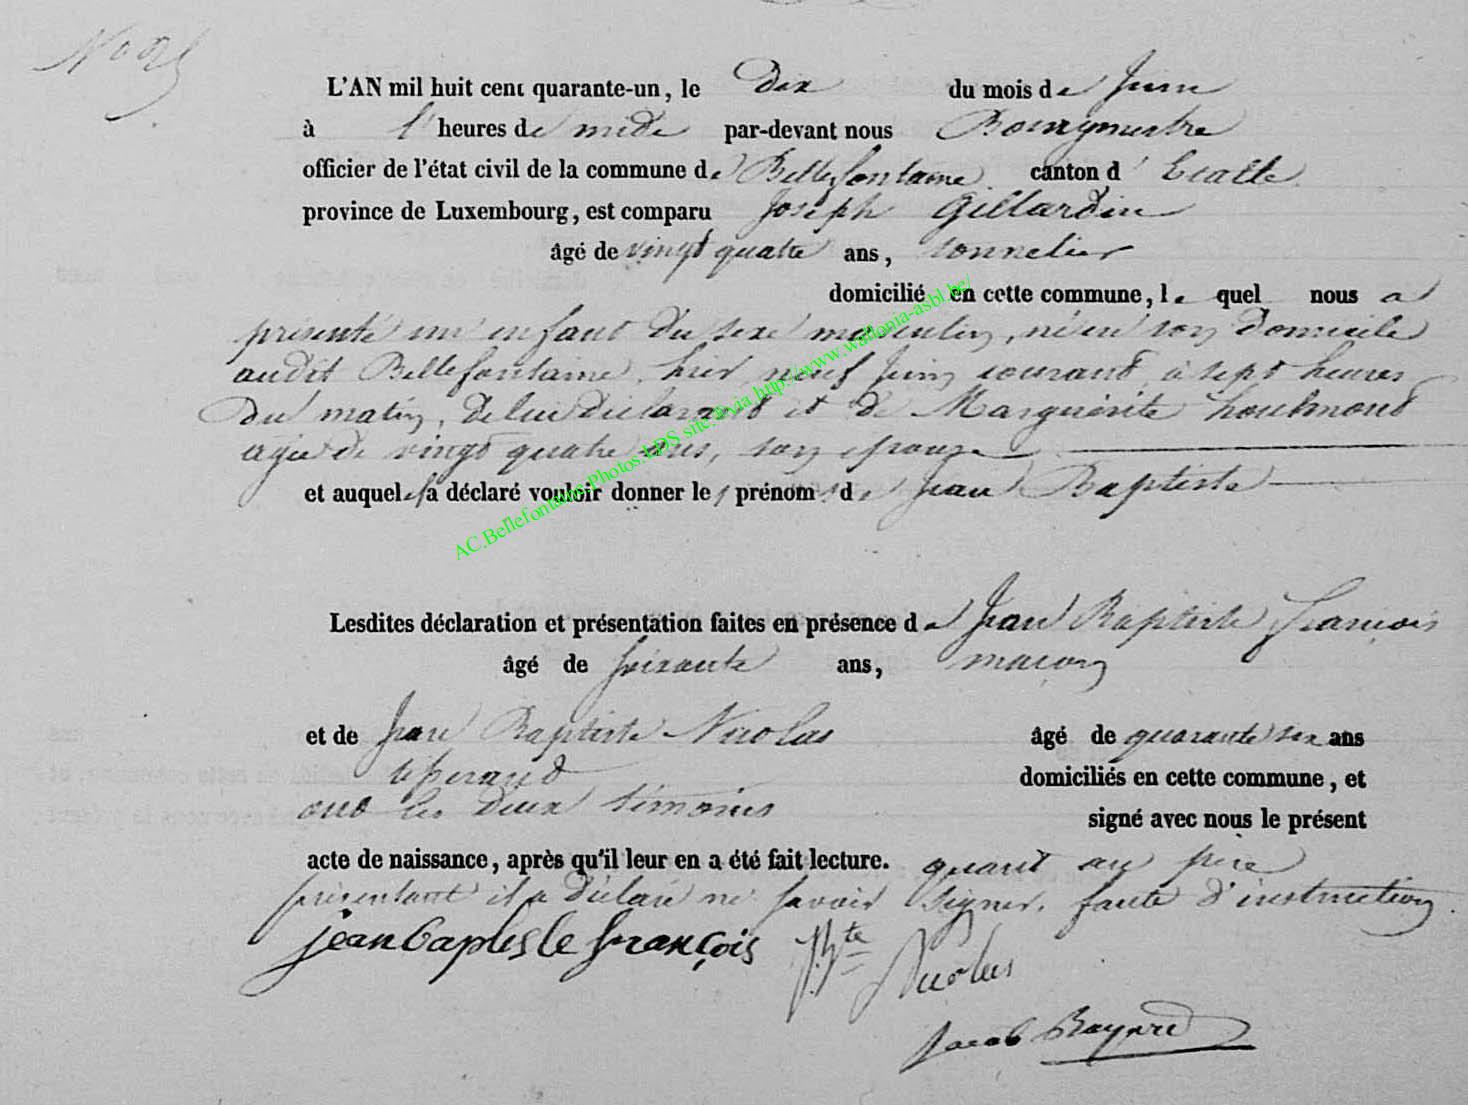 L'AN mil huit cent quarante-un, le dix du mois de Juin
à heures de midi par-devant nous Bourgmestre
officier de l'état civil de la commune de Bellefontaine canton d'Etalle
province de Luxembourg, est comparu Joseph Gillardin
âgé de vingt quatre ans, tonnelier
domicilié en cette commune, le quel nous a
présenté un enfant du sexe masculin, né en son domicile
audit Bellefontaine, hier neuf Juin courant, à sept heures
du matin, de lui déclarant et de Marguérite houlmont
agée de vingt quatre ans, son épouse
et auquel a déclaré vouloir donner les prénoms de Jean Baptiste
Lesdites déclaration et présentation faites en présence de Jean Baptiste François
âgé de soixante ans, maçon
et de Jean Baptiste Nicolas âgé de quarante six ans
domiciliés en cette commune, et
ont les deux témoins signé avec nous le présent
acte de naissance, après qu'il leur en a été fait lecture. quant au père
présentant il a déclaré ne savoir signer, faute d'instruction.
jean baptiste françois J. Bte Nicolas
Jacob Bayard
AC.Bellefontaine.Photos.LDS site.#via http://www.wallonia-asbl.be/